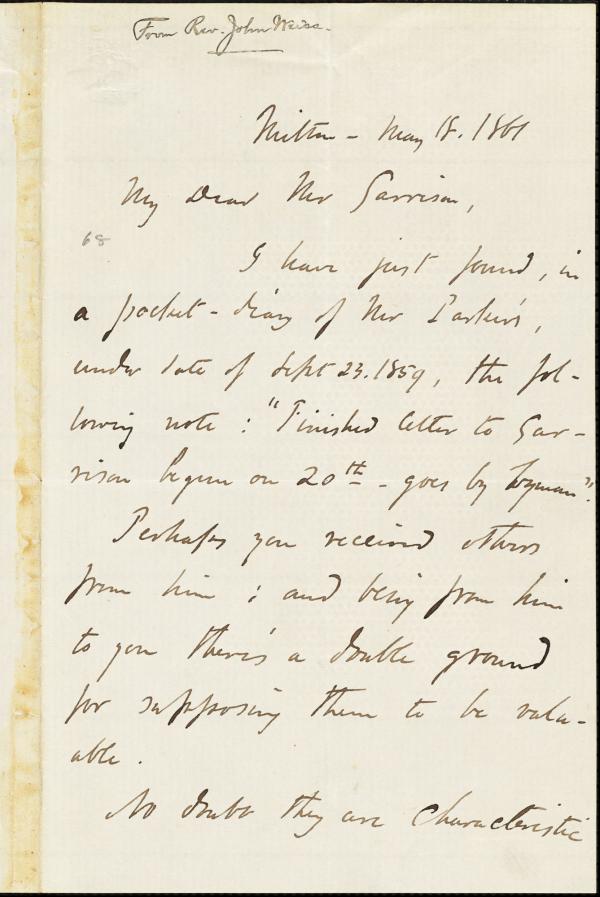 From Rev. John Weiss.
Milton - May 18. 1861
My Dear Mr Garrison,
68
I have just found, in
a pocket-diary of Mr Parker's,
under date of Sept 23. 1859, the fol-
lowing note: "Finished letter to Gar-
rison begun on 20th - goes by Lyman".
Perhaps you received others
from him; and being from him
to you there's a double ground
for supposing them to be valu-
able.
No doubt they are characteristic